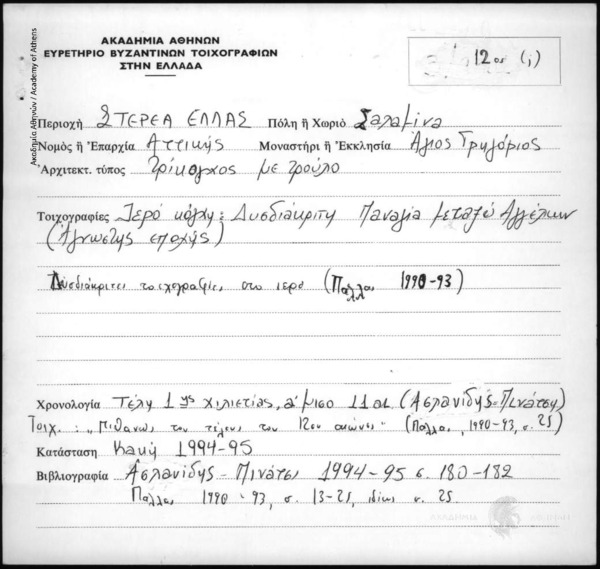 Ακαδημία Αθηνών / Academy of Athens
ΑΚΑΔΗΜΙΑ ΑΘΗΝΩΝ
ΕΥΡΕΤΗΡΙΟ ΒΥΖΑΝΤΙΝΩΝ ΤΟΙΧΟΓΡΑΦΙΩΝ
ΣΤΗΝ ΕΛΛΑΔΑ
12ος (;)
Περιοχή ΣΤΕΡΕΑ ΕΛΛΑΣ Πόλη ἤ Χωριό Σαλαμίνα
Νομός ἤ Ἐπαρχία Αττικής Μοναστήρι ἤ Ἐκκλησία Άγιος Γρηγόριος
Ἀρχιτεκτ. τύπος Τρίκογχος με τρούλο
Τοιχογραφίες Ιερό κόγχη: Δυσδιάκριτη Παναγία μεταξύ Αγγέλων
(Άγνωστης εποχής)
Δυσδιάκριτες τοιχογραφίες στο ιερό (Πάλλας 1990-93)
Χρονολογία Τέλη 1ης χιλιετίας, α' μισο 11 αι. (Ασλανίδης - Πινάτση)
Τοιχ. : "Πιθανώς του τέλους του 12ου αιώνος" (Πάλλας, 1990-93, σ. 25)
Κατάσταση Κακή 1994-95
Βιβλιογραφία Ασλανίδης - Πινάτση 1994-95 σ. 180-182
Πάλλας, 1990-93, σ. 13-25, ιδίως σ. 25